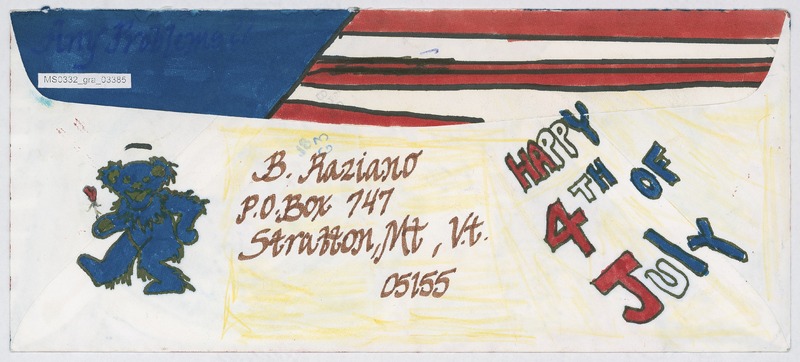 Any Problems
MS0332_gra_03385
B. Raziano
P.O.Box 747
Stratton,Mt, Vt.
05155
HAPPY
4TH OF
July